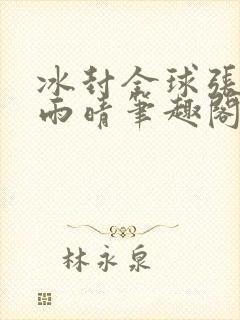 冰封全球張
雨晴筆趣閣
林永泉